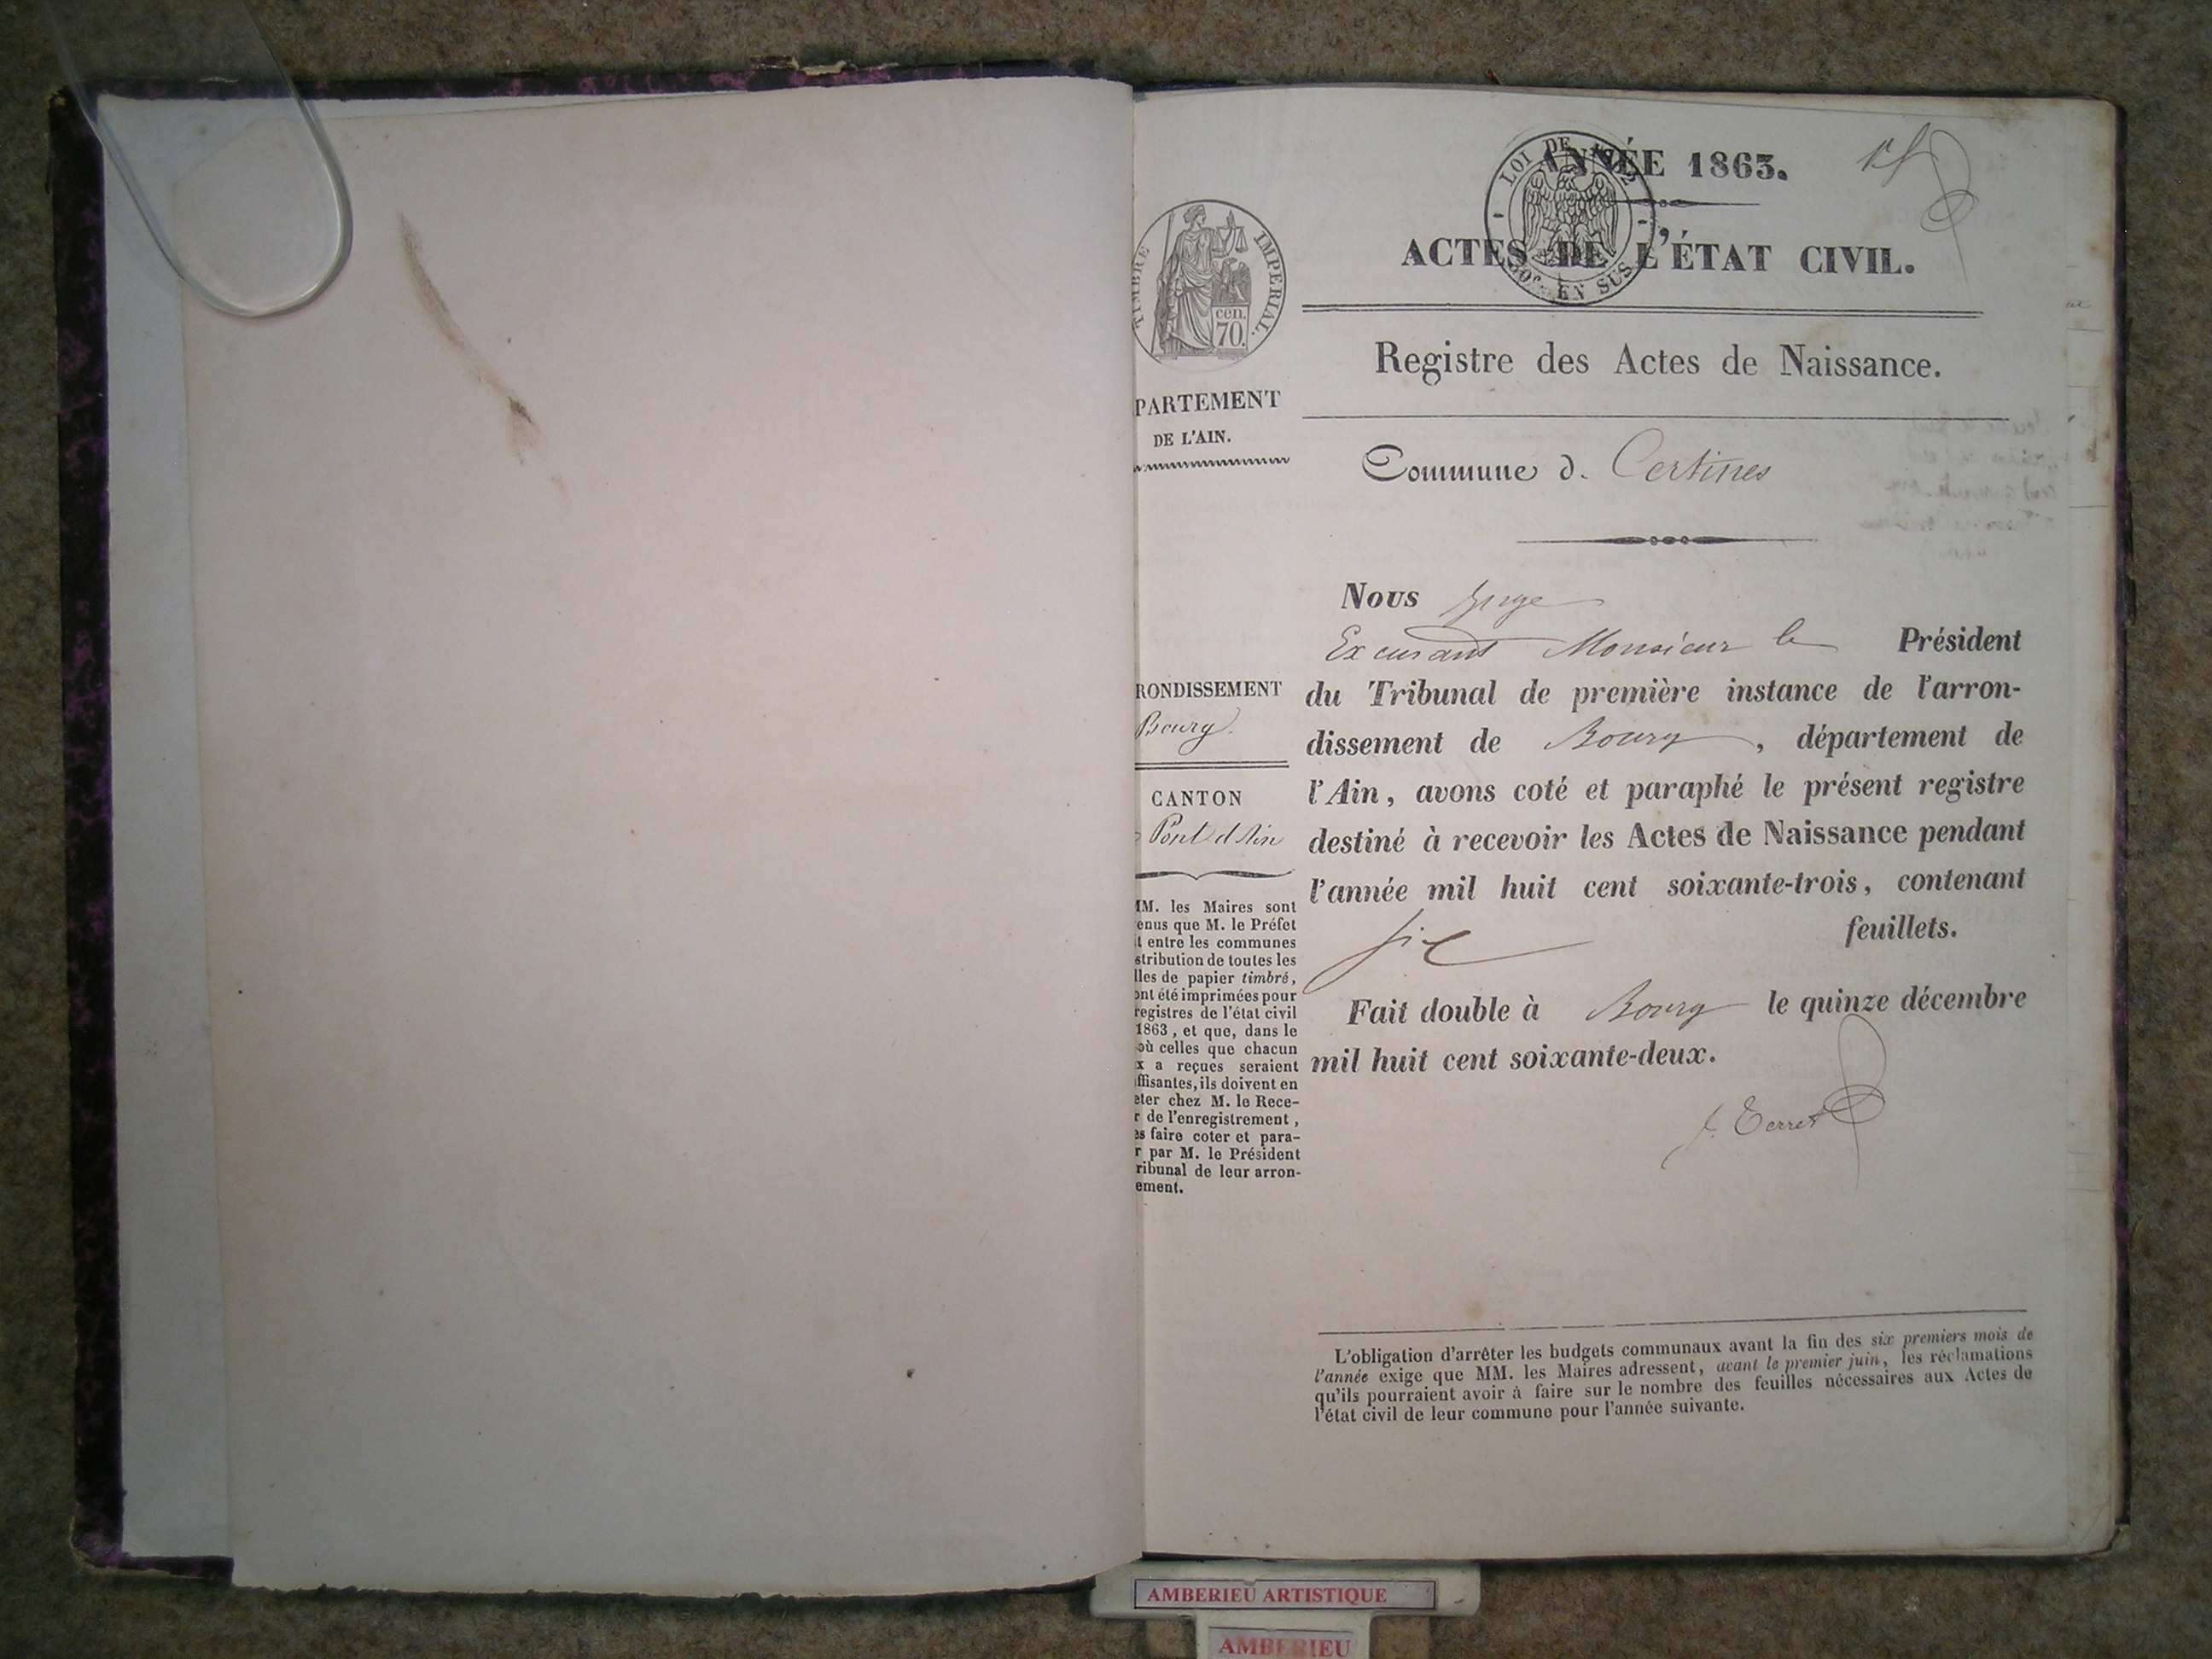 ANNÉE 1863.
LOI DE
50c. EN SUS
ACTES DE L'ÉTAT CIVIL.
TIMBRE IMPERIAL.
cen.
70.
Registre des Actes de Naissance.
PARTEMENT
DE L'AIN.
Commune d. Certines
RONDISSEMENT
Bourg
CANTON
Pont d'Ain
MM. les Maires sont
enus que M. le Préfet
t entre les communes
stribution de toutes les
lles de papier timbré,
ont été imprimées pour
registres de l'état civil
1863, et que, dans le
où celles que chacun
x a reçues seraient
ffisantes, ils doivent en
eter chez M. le Rece-
r de l'enregistrement,
es faire coter et para-
r par M. le Président
ribunal de leur arron-
ement.
Nous Juge
Excusant Monsieur le Président
du Tribunal de première instance de l'arron-
dissement de Bourg, département de
l'Ain, avons coté et paraphé le présent registre
destiné à recevoir les Actes de Naissance pendant
l'année mil huit cent soixante-trois, contenant
six feuillets.
Fait double à Bourg le quinze décembre
mil huit cent soixante-deux.
J. Terret
L'obligation d'arrêter les budgets communaux avant la fin des six premiers mois de
l'année exige que MM. les Maires adressent, avant le premier juin, les réclamations
qu'ils pourraient avoir à faire sur le nombre des feuilles nécessaires aux Actes de
l'état civil de leur commune pour l'année suivante.
AMBERIEU ARTISTIQUE
AMBERIEU